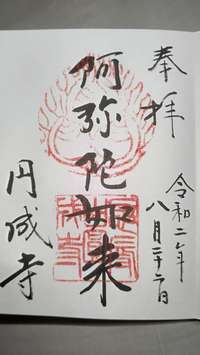 奉拝
令和二年
八月二十二日
阿弥陀如来
円成寺